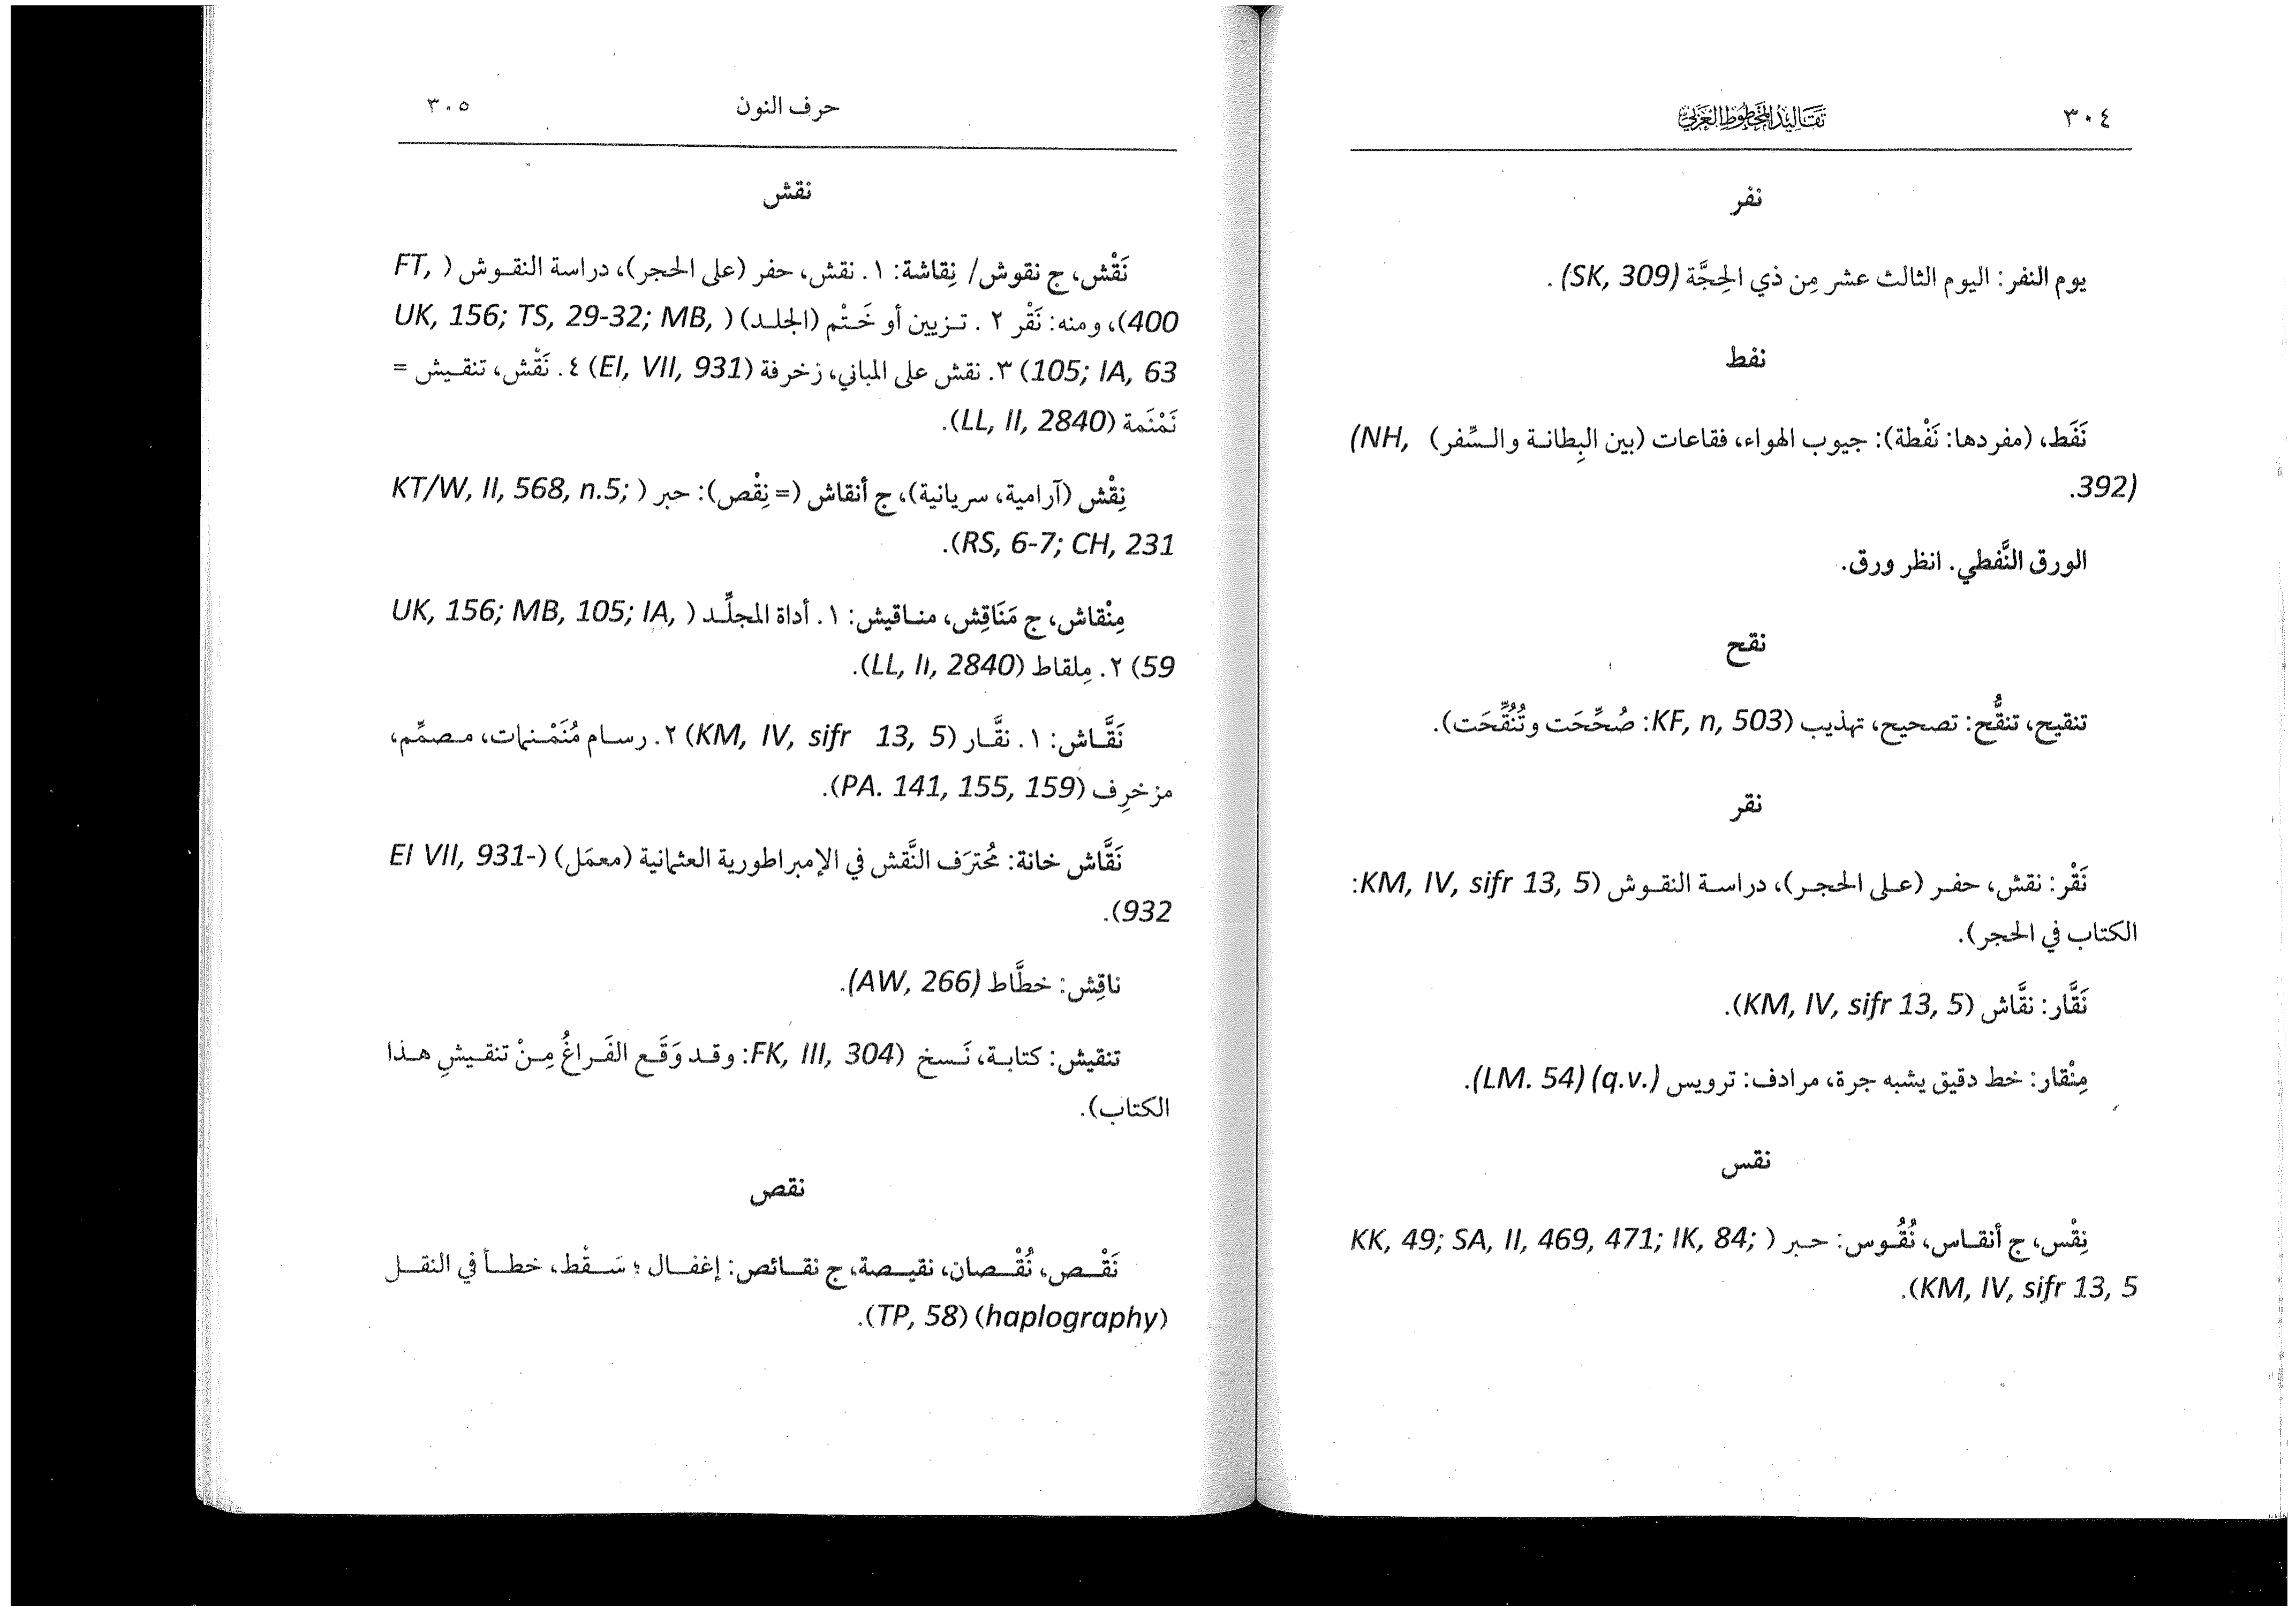 ٣٠٤
تقاليد المخطوط العربي
نفر
يوم النفر: اليوم الثالث عشر مِن ذي الحِجَّة (SK, 309).
نفط
نَفَط، (مفردها: نَفْطة): جيوب الهواء، فقاعات (بين البِطانة والسِّفر) (NH,
392).
الورق النَّفطي. انظر ورق.
نقح
تنقيح، تنقُّح: تصحيح، تهذيب (KF, n, 503: صُحِّحَت وتُنُقِّحَت).
نقر
نَقْر: نقش، حفر (على الحجر)، دراسة النقوش (KM, IV, sifr 13, 5:
الكتاب في الحجر).
نَقَّار: نقَّاش (KM, IV, sifr 13, 5).
مِنْقار: خط دقيق يشبه جرة، مرادف: ترويس (q.v.) (LM. 54).
نقس
نِقْس، ج أنقاس، نُقُوس: حبر (KK, 49; SA, II, 469, 471; IK, 84;
KM, IV, sifr 13, 5).
حرف النون
٣٠٥
نقش
نَقْش، ج نقوش/ نِقاشة: ١. نقش، حفر (على الحجر)، دراسة النقوش (FT,
400)، ومنه: نَقْر ٢. تزيين أو خَتْم (الجلد) (UK, 156; TS, 29-32; MB,
105; IA, 63) ٣. نقش على المباني، زخرفة (EI, VII, 931) ٤. نَقْش، تنقيش =
نَمْنَمة (LL, II, 2840).
نِقْش (آرامية، سريانية)، ج أنقاش (= نِقْص): حبر (KT/W, II, 568, n.5;
RS, 6-7; CH, 231).
مِنْقاش، ج مَنَاقِش، مناقيش: ١. أداة المجلِّد (UK, 156; MB, 105; IA,
59) ٢. مِلقاط (LL, II, 2840).
نَقَّاش: ١. نقَّار (KM, IV, sifr 13, 5) ٢. رسام مُنَمْنمات، مصمِّم،
مزخرِف (PA. 141, 155, 159).
نَقَّاش خانة: مُحترَف النَّقش في الإمبراطورية العثمانية (معمَل) (EI VII, 931-
932).
ناقِش: خطَّاط (AW, 266).
تنقيش: كتابة، نَسخ (FK, III, 304: وقد وَقَع الفَراغُ مِنْ تنقيشِ هذا
الكتاب).
نقص
نَقْص، نُقْصان، نقيصة، ج نقائص: إغفال؛ سَقْط، خطأ في النقل
(haplography) (TP, 58).